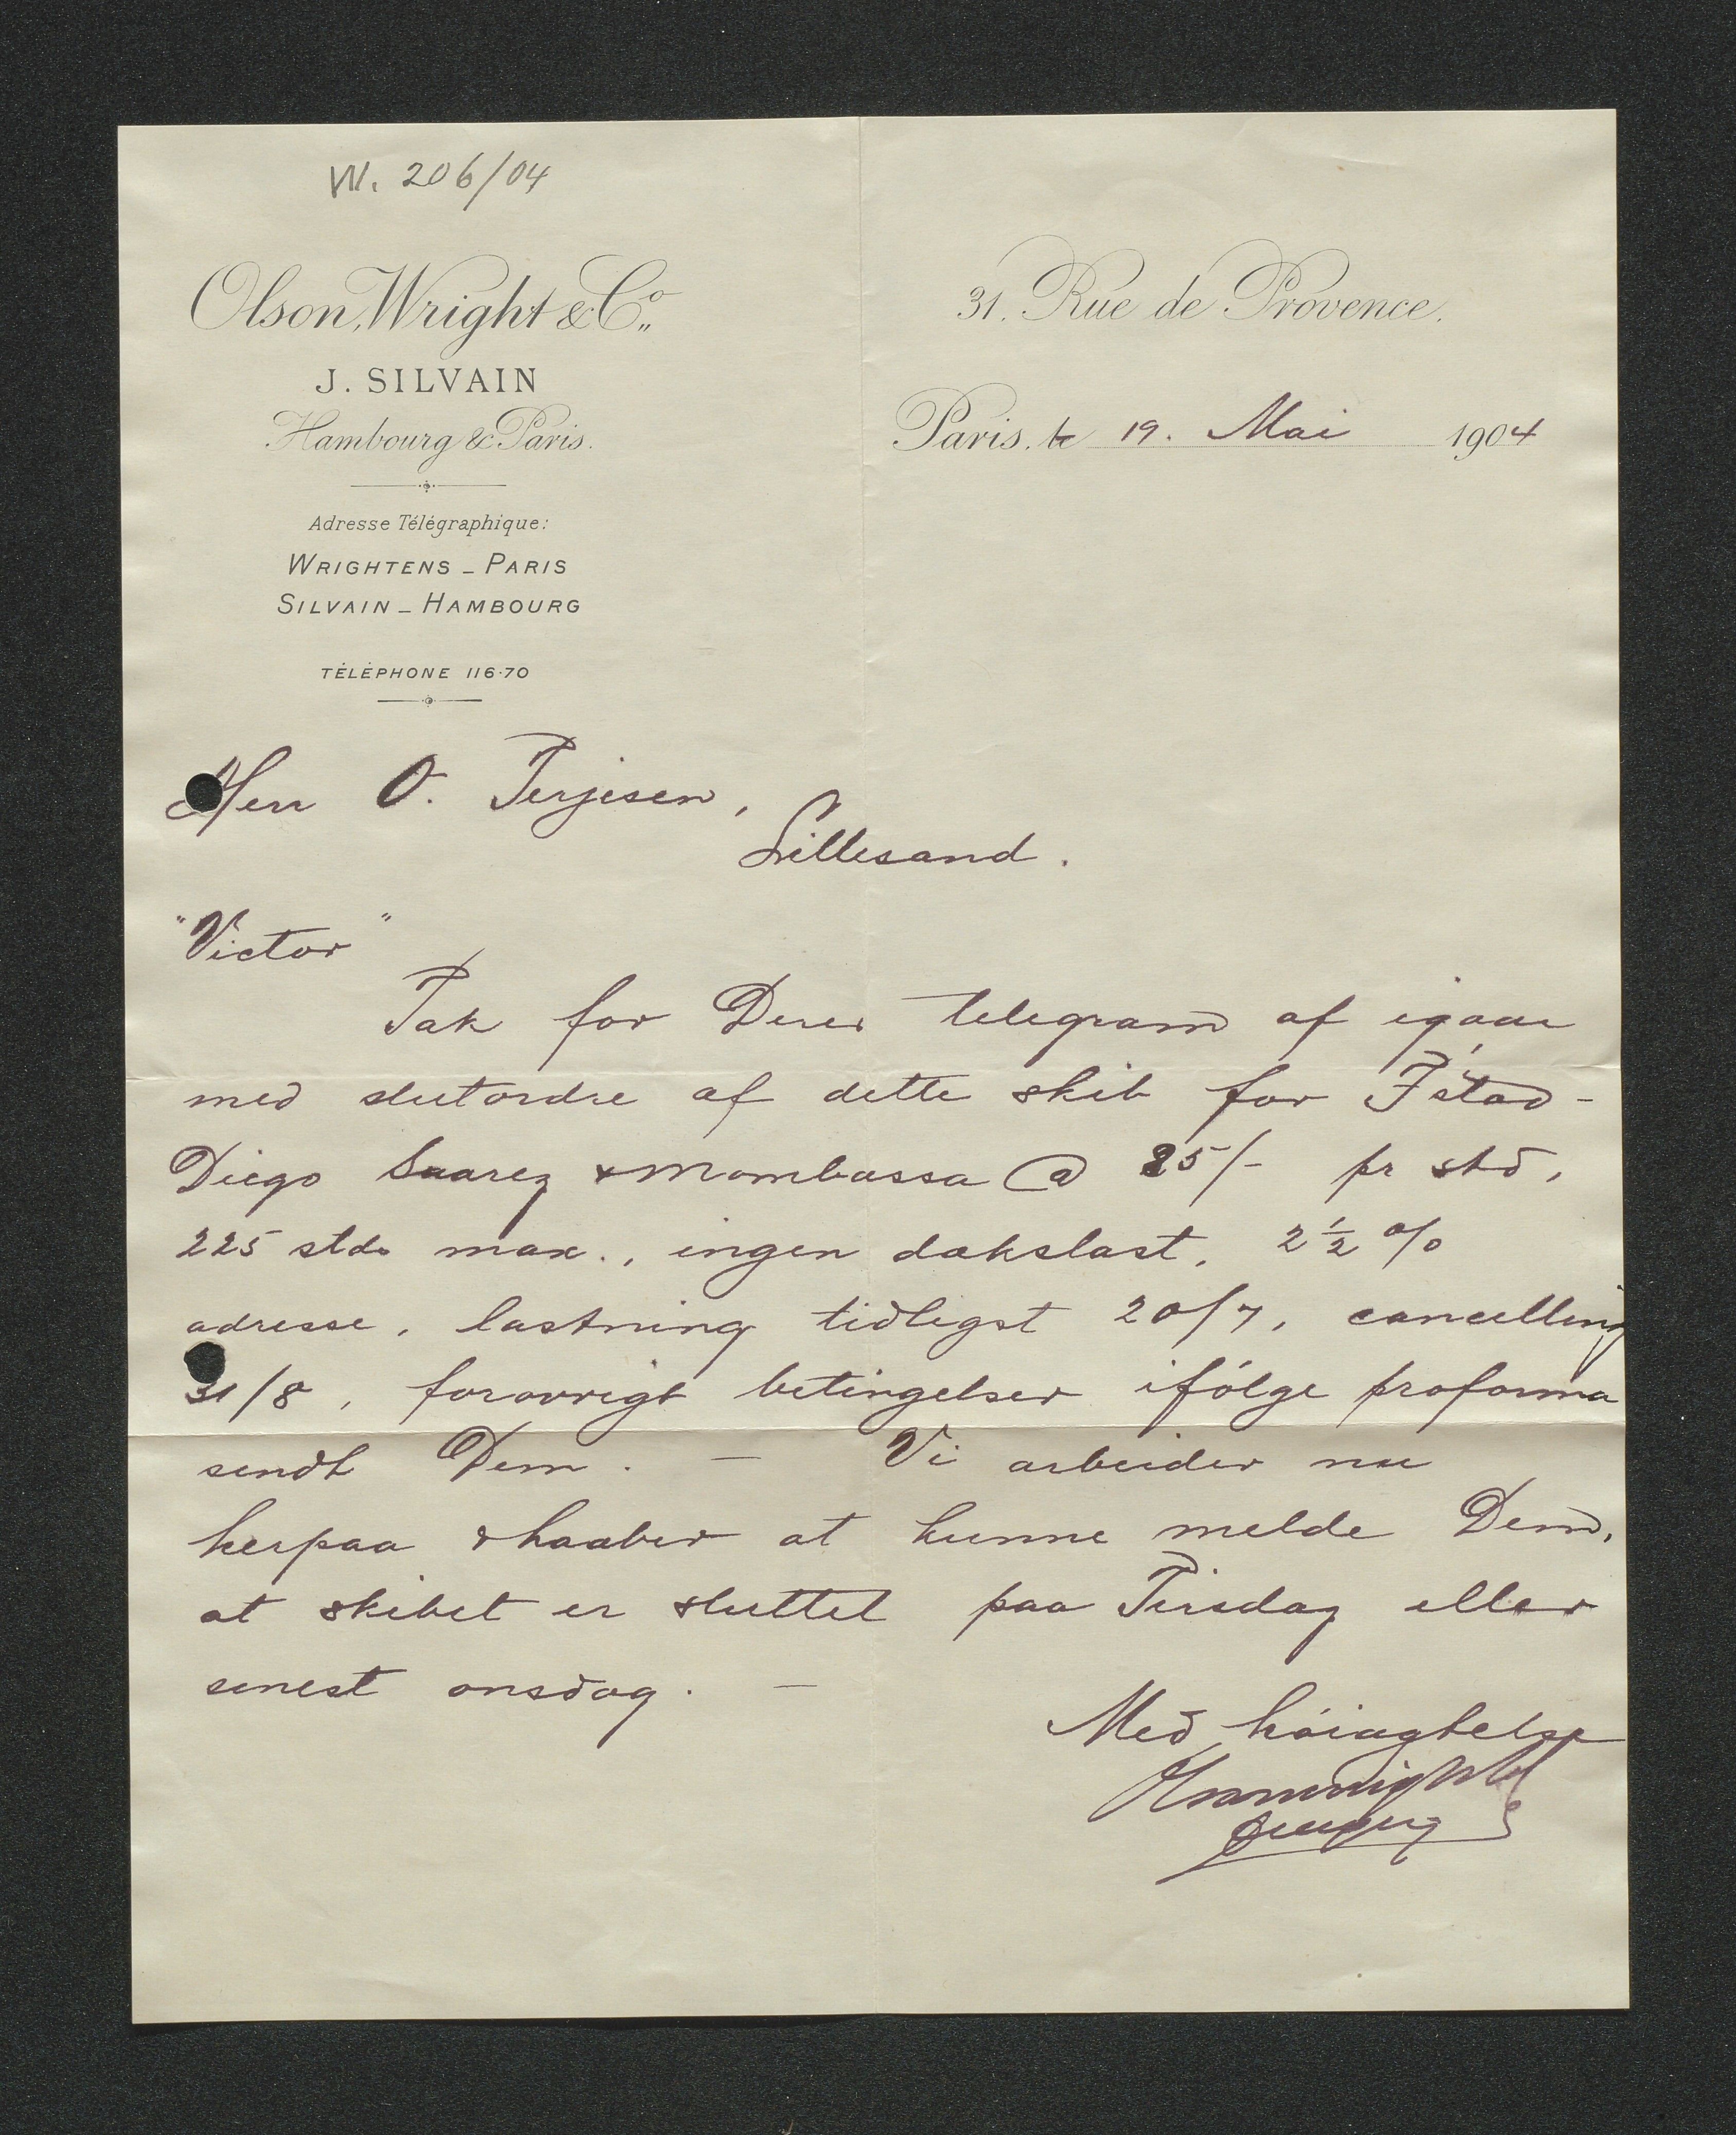 VII. 206/04
Olson, Wright & Co.,
31. Rue de Provence.
J. SILVAIN
Hambourg & Paris.
Paris, le 19. Mai 1904
Adresse Télégraphique:
WRIGHTENS _ PARIS
SILVAIN _ HAMBOURG
TÉLÉPHONE 116-70
Herr O. Terjesen,
Lillesand.
"Victor"
Tak for Deres telegram af igaar
med slutordre af dette skib for Istad-
Diego Suarez & Mombassa @ 85/- pr std,
225 stds max., ingen dækslast, 2½ %
adresse, lastning tidligst 20/7, cancelling
31/8, forøvrigt betingelser ifølge proforma
sendt Dem. — Vi arbeider nu
herpaa & haaber at kunne melde Dem,
at skibet er sluttet paa Tirsdag eller
senest onsdag. —
Med høiagtelse